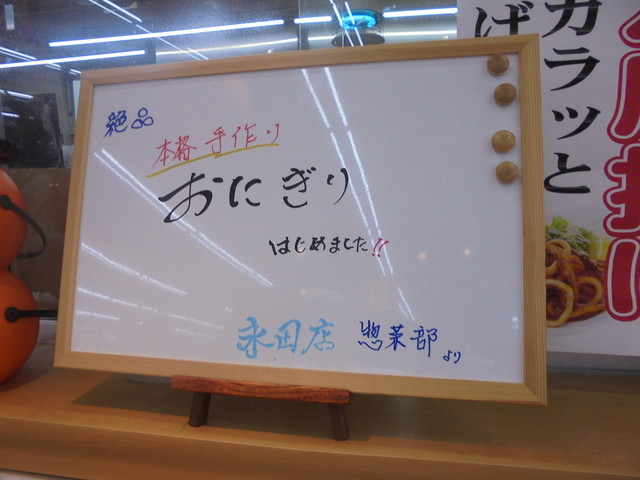 絶品
本格 手作り
おにぎり
はじめました!!
永田店 惣菜部より
カラッと
げ